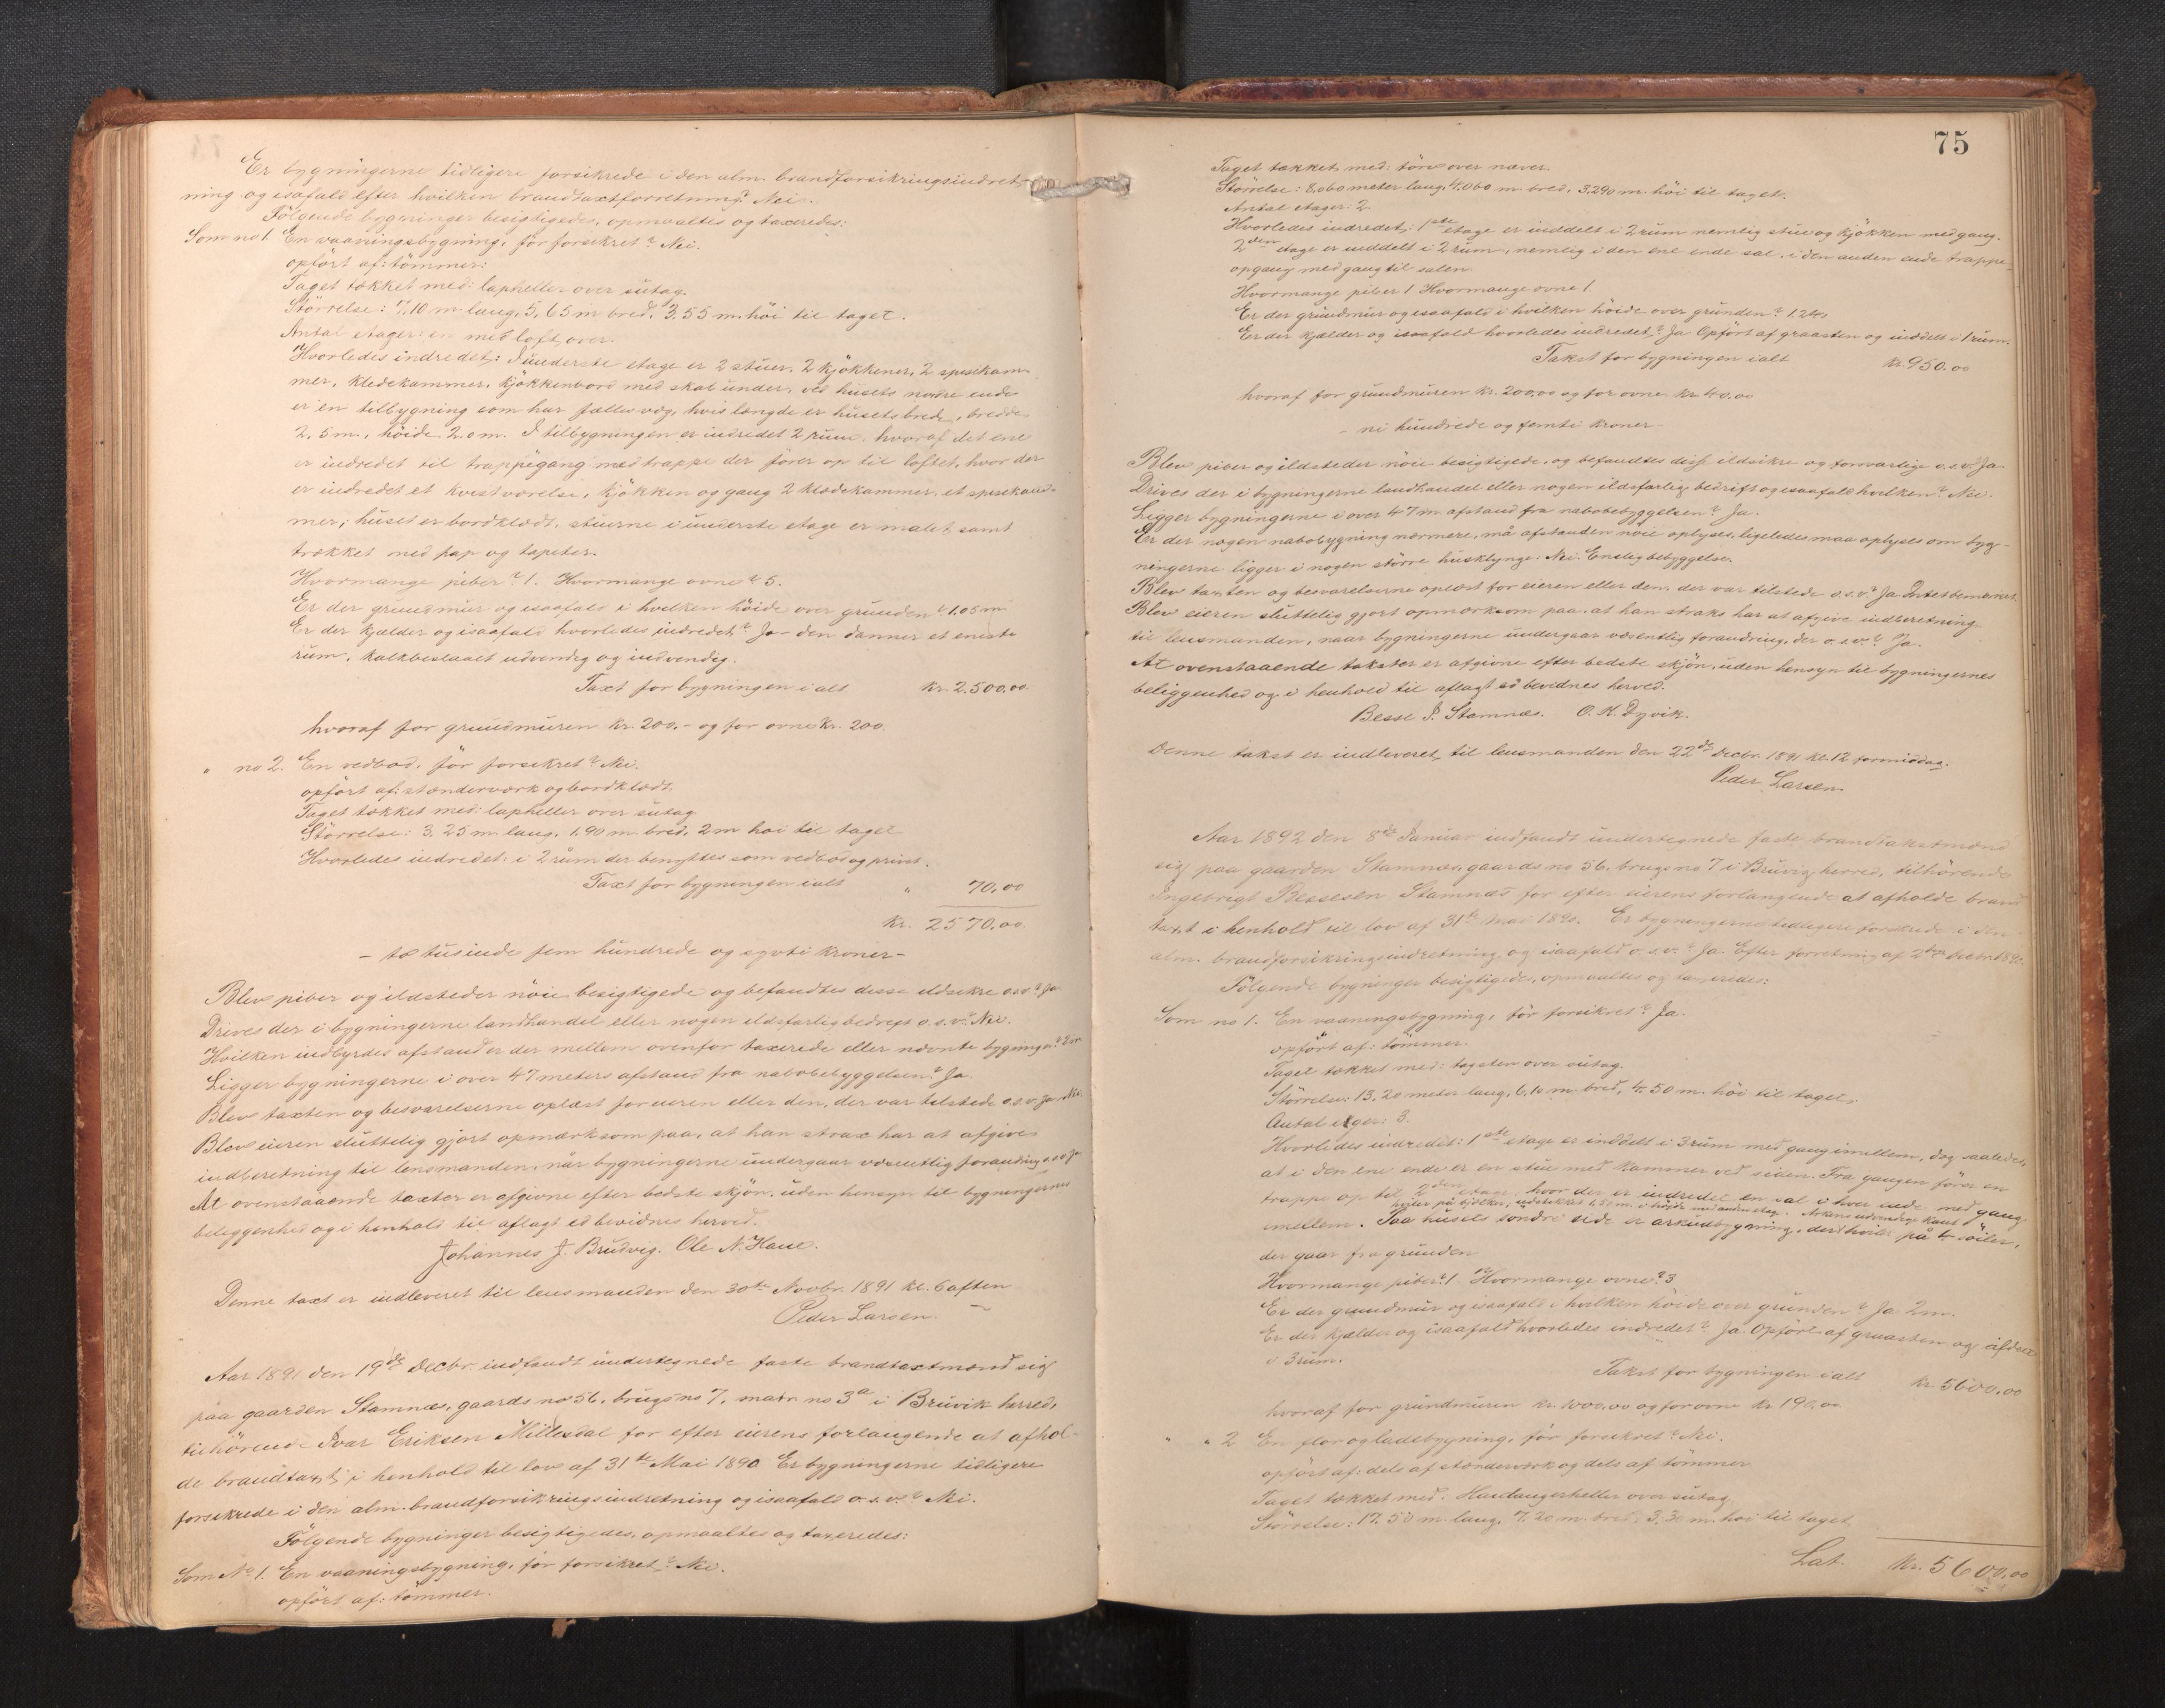 Er bygningerne tidligere forsikrede i den alm. brandforsikringsindret-
ning og isafald efter hvilken brandtaxtforretning? Nei.
Følgende bygninger besigtigedes, opmaaltes og taxeredes:
Som no 1. En vaaningsbygning, før forsikret? Nei.
opført af: tømmer:
Taget tækket med: lapheller over sutag.
Størrelse: 17,10 m. lang, 5,65 m bred, 3,55 m. høi til taget.
Antal etager: en med loft over.
Hvorledes indredet: I underste etage er 2 stuer, 2 kjøkkener, 2 spisekam-
mer, kledekammer, kjøkkenbord med skab under, ved husets nordre ende
er en tilbygning som har fælles væg, hvis længde er husets bredde, bredde
2,5 m., høide 2.0 m. I tilbygningen er indredet 2 rum, hvoraf det ene
er indredet til trappegang med trappe der fører op til loftet, hvor der
er indredet et kvistværelse, kjøkken og gang 2 klædekammer, et spisekam-
mer; huset er bordklædt, stuerne i underste etage er malet samt
trækket med pap og tapeter.
Hvormange piber? 1. Hvormange ovne? 5.
Er der grundmur og isaafald i hvilken høide over grunden? 1.05 m
Er der kjælder og isaafald hvorledes indredet? Ja - den danner et eneste
rum, kalkbeslaaet udvendig og indvendig.
Taxt for bygningen i alt kr. 2.500,00.
hvoraf for grundmuren kr. 200.- og for ovne kr. 200.
" no 2. En vedbod, før forsikret? Nei.
opført af: stænderværk og bordklædt.
Taget tækket med: lapheller over sutag
Størrelse: 3,25 m lang, 1,90 m bred, 2 m høi til taget
Hvorledes indredet: i 2 rum der benyttes som vedbod og privet.
Taxt for bygningen ialt " 70,00
Kr. 2570,00.
- to tusinde fem hundrede og sytti kroner -
Blev piber og ildsteder nøie besigtigede og befandtes disse ildsikre o.s.v? Ja
Drives der i bygningerne landhandel eller nogen ildsfarlig bedrift o.s.v.? Nei.
Hvilken indbyrdes afstand er der mellem ovenfor taxerede eller nævnte bygninger?
Ligger bygningerne i over 47 meters afstand fra nabobebyggelsen? Ja.
Blev taxten og besvarelserne oplæst for eieren eller den, der var tilstede o.s.v. Ja. Nei.
Blev eieren sluttelig gjort opmærksom paa, at han strax har at afgive
indberetning til lensmanden, når bygningerne undergaar væsentlig forandring o.s.v Ja
At ovenstaaende taxter er afgivne efter bedste skjøn, uden hensyn til bygningernes
beliggenhed og i henhold til aflagt ed bevidnes herved.
Johannes J. Brudvig. Ole N. Haue.
Denne taxt er indleveret til lensmanden den 30te Novbr. 1891 kl. 6 aften
Peder Larsen.
Aar 1891 den 19de Decbr. indfandt undertegnede faste brandtaxtmænd sig
paa gaarden Stamnæs, gaards no 56, brugs no 7, matr no 3a i Bruvik herred,
tilhørende Ivar Eriksen Millesdal for efter eierens forlangende at afhol-
de brandtaxt i henhold til lov af 31te Mai 1890 Er bygningerne tidligere
forsikrede i den alm. brandforsikringsindretning og isaafald o.s.v.? Nei.
Følgende bygninger besigtigedes, opmaaltes og taxeredes:
Som No 1. En vaaningsbygning, før forsikret? Nei.
opført af: tømmer.
75
Taget tækket med: tørv over næver.
Størrelse: 8,060 meter lang, 4,060 m. bred, 3.290 m. høi til taget.
Antal etager: 2.
Hvorledes indredet: 1ste etage er inddelt i 2 rum nemlig stue og kjøkken med gang.
2den etage er inddelt i 2 rum, nemlig i den ene ende sal, i den anden ende trappe-
opgang med gang til salen.
Hvormange piber 1 Hvormange ovne 1.
Er der grundmur og isaafald i hvilken høide over grunden? 1.240
Er der kjælder og isaafald hvorledes indredet? Ja Opført af graasten og inddelt i 1 rum.
Takst for bygningen ialt kr. 950.00
hvoraf for grundmuren kr. 200,00 og for ovne kr. 40.00
- ni hundrede og femti kroner -
Blev piber og ildsteder nøie besigtigede, og befandtes disse ildsikre og forsvarlige o.s.v? Ja
Drives der i bygningerne landhandel eller nogen ildsfarlig bedrift og isaafald hvilken? Nei.
Ligger bygningerne i over 47 m afstand fra nabobebyggelsen? Ja.
Er der nogen nabobygning nærmere, må afstanden nøie oplyses, ligeledes maa oplyses om byg-
ningerne ligger i nogen større husklynge: Nei. Enslig bebyggelse.
Blev taxten og besvarelserne oplæst for eieren eller den, der var tilstede o.s.v.? Ja. Intet bemærket.
Blev eieren sluttelig gjort opmærksom paa, at han straks har at afgive indberetning
til lensmanden, naar bygningerne undergaar væsentlig forandring, der o.s.v.? Ja.
At ovenstaaende takster er afgivne efter bedste skjøn, uden hensyn til bygningernes
beliggenhed og i henhold til aflagt ed bevidnes herved.
Besse I. Stamnæs. O. K. Dyvik.
Denne takst er indleveret til lensmanden den 22de Decbr. 1891 kl. 12 formiddag.
Peder Larsen
Aar 1892 den 8de Januar indfandt undertegnede faste brandtakstmænd
sig paa gaarden Stamnæs, gaards no 56, brugs no 7 i Bruvig herred, tilhørende
Ingebrigt Bessesen Stamnæs for efter eierens forlangende at afholde brand
taxt i henhold til lov af 31te Mai 1890. Er bygningerne tidligere forsikrede i den
alm. brandforsikringsindretning og isaafald o.s.v.? Ja. Efter forretning af 2den
Følgende bygninger besigtigedes, opmaaltes og taxeredes:
Som no 1. En vaaningsbygning, før forsikret? Ja.
opført af: tømmer.
Taget tækket med: tagsten over sutag
Størrelse: 13,20 meter lang, 6,10 m. bred, 4.50 m. høi til taget.
Antal etger: 3.
Hvorledes indredet: 1ste etage er inddelt i 3 rum med gang imellem, dog saaledes,
at i den ene ende er en stue med kammer ved siden. Fra gangen fører en
trappe op til 2den etage, hvor der er indredet en sal i hver ende med gang
imellem. Paa husets søndre side er arkudbygning, der hviler på 4 søiler,
der gaar fra grunden
Hvormange piber? 1 Hvormange ovne? 3
Er der grundmur og isaafald i hvilken høide over grunden? Ja 2 m.
Er der kjælder og isaafald hvorledes indredet? Ja. Opført af graasten og afdelt
i 3 rum.
Takst for bygningen ialt kr. 5600,00
hvoraf for grundmuren kr. 1000,00 og for ovne kr 190,00
" " 2 En flor og ladebygning, før forsikret? Nei.
opført af: dels af stænderværk og dels af tømmer
Taget tækket med: Hardangerheller over sutag.
Størrelse: 17,50 m. lang, 7,20 m. bred, 3,30 m. høi til taget
Lat. kr. 5600,00